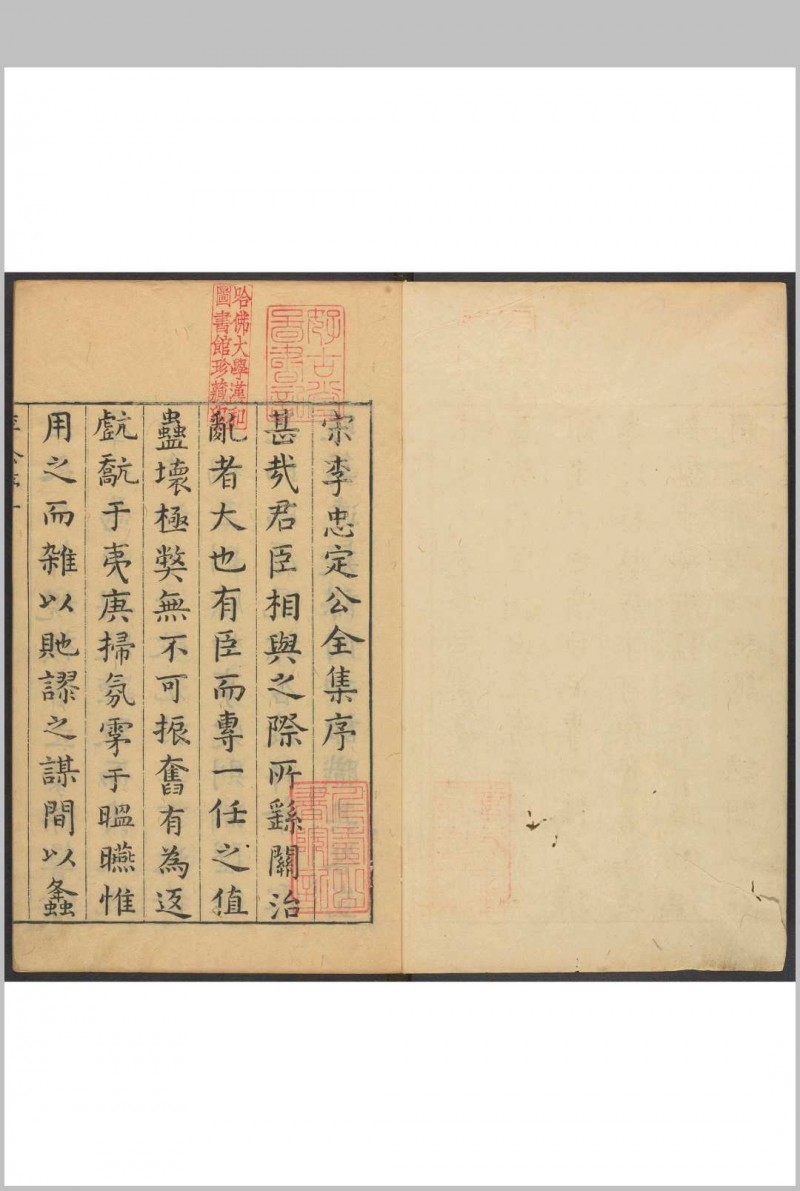 宋李忠定公全集序
甚哉君臣相與之際所繇關治
亂者大也有臣而專一任之值
蠱壞極獘無不可振奮有為返
于夷庚掃氛雺于昷曣惟
用之而雜以訑謬之謀間以蟊
哈佛大學漢和
圖書館珍藏印